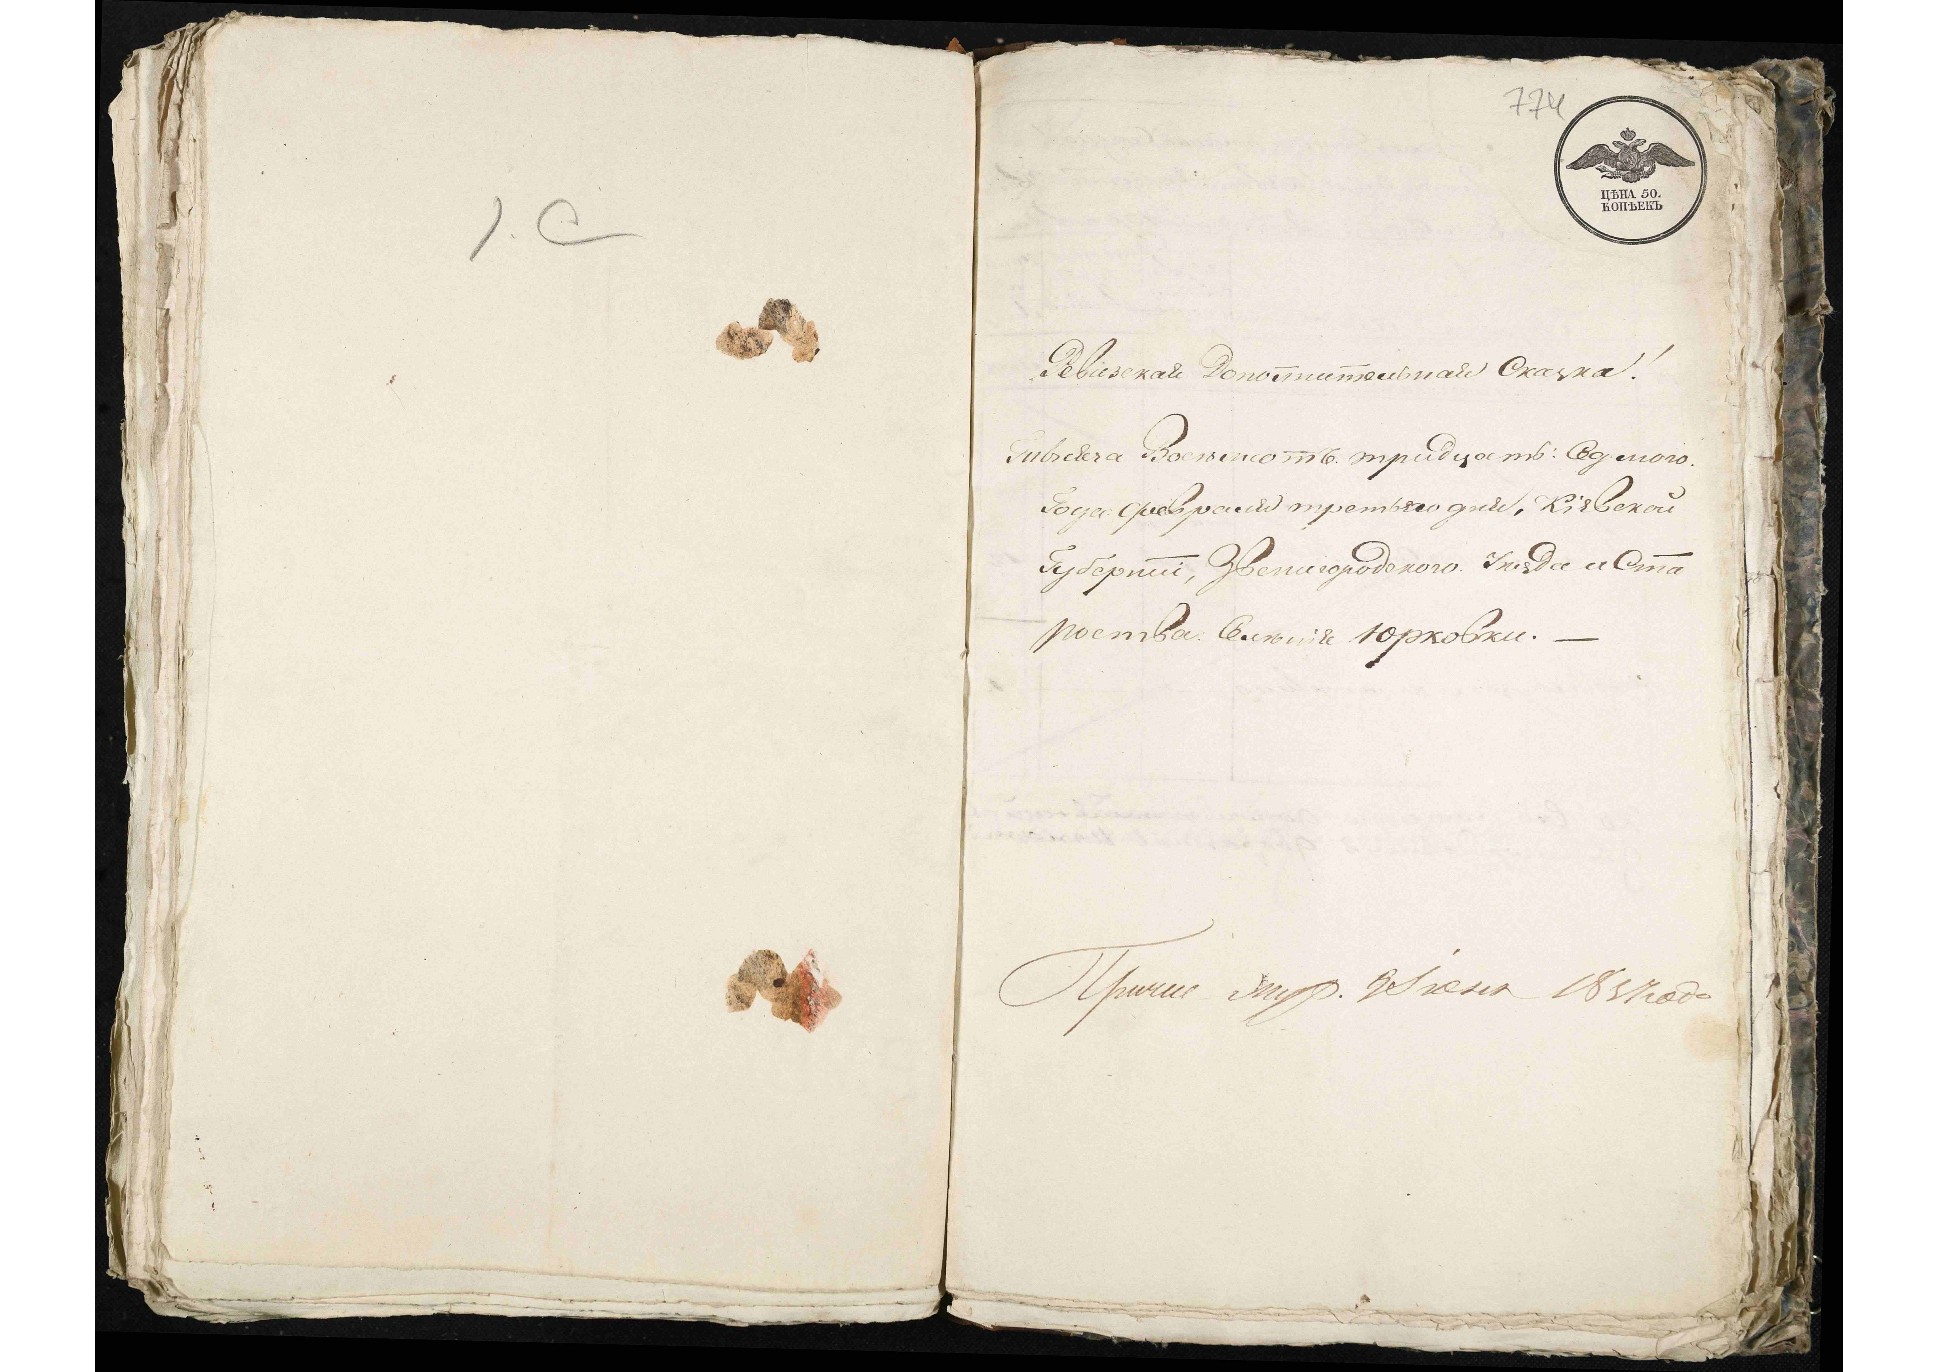 774
ЦѢНА 50.
КОПѢЕКЪ
1. С
Ревизская Дополнительная Сказка!
Тысяча Восемьсотъ тридцать: Седмого.
Года февраля третьего дня, Кіевской
Губерніи, Звенигородского Уезда и Ста
роства: Селенія Юрковки. —
1837 года